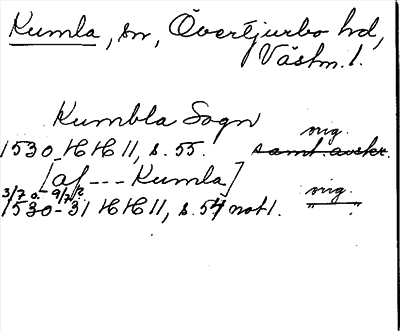 Kumla, sn, Övertjurbo hd,
Västm. l.
Kumbla Sogn
orig.
1530 HH II, s. 55. samt. avskr.
[af --- Kumla]
3/7 o. 9/7 orig.
1530-31 HH II, s. 54 not 1. " "